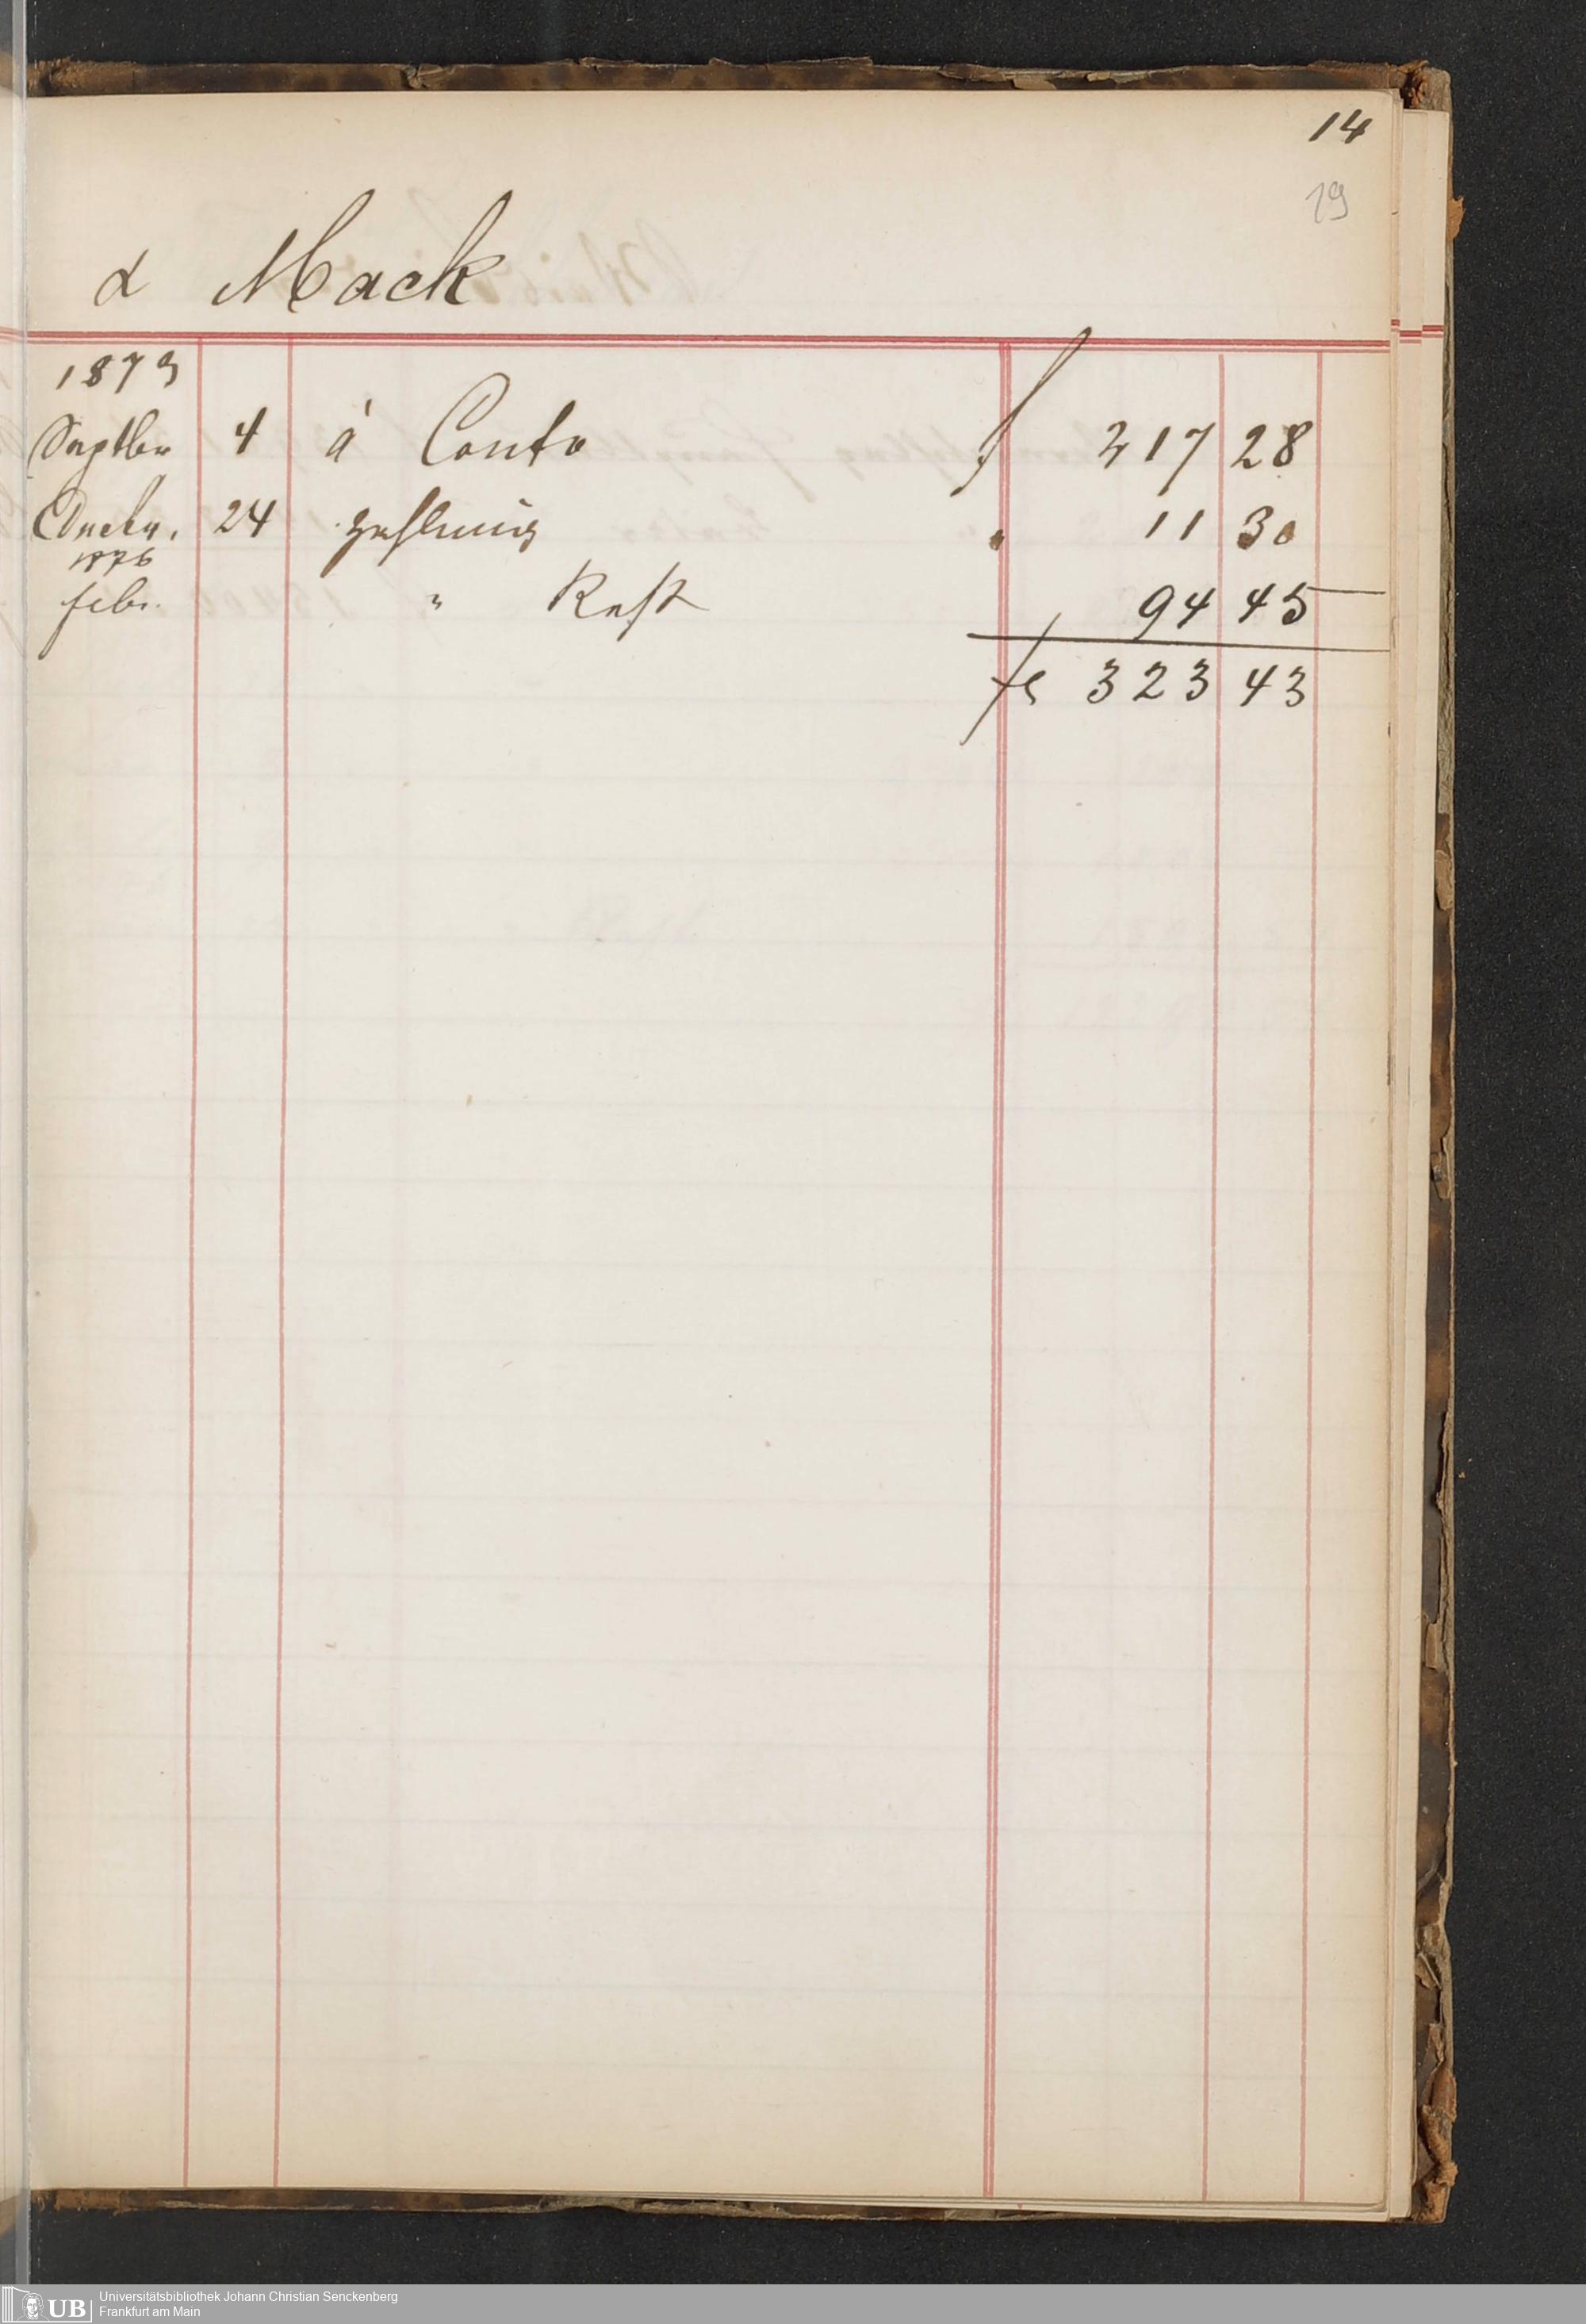 14
19
& Mack
1873
Septber 4 à Conto f 217 28
Decbr. 24 Zahlung " 11 30
1876
febr. " Rest 94 45
fl 323 43
Universitätsbibliothek Johann Christian Senckenberg
UB Frankfurt am Main